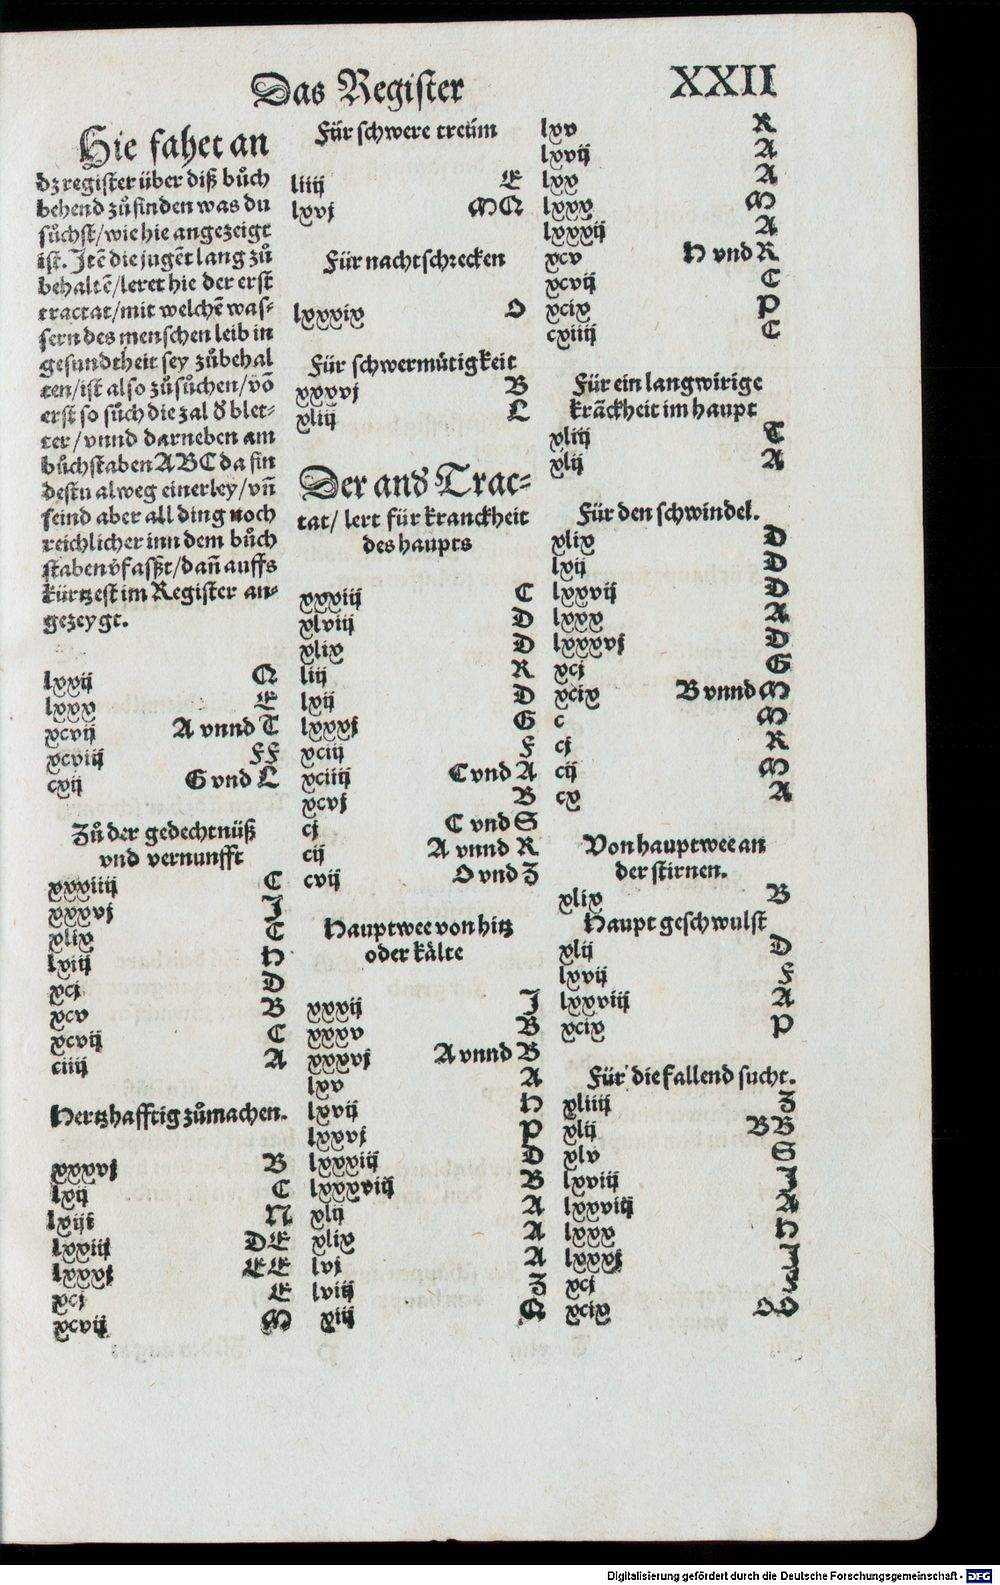 Das Register
XXII
Hie fahet an
dz register über diß bůch
behend zůfinden was du
sůchst/wie hie angezeigt
ist. Jtē die jugēt lang zů
behaltē/leret hie der erst
tractat/mit welchē was-
sern des menschen leib in
gesundtheit sey zůbehal
ten/ist also zůsůchen/võ
erst so sůch die zal d̕ blet-
ter/vnnd darneben am
bůchstaben ABC da fin
destu alweg einerley/vñ
seind aber all ding noch
reichlicher inn dem bůch
staben v̕fasßt/dañ auffs
kürtzest im Register an-
gezeygt.
lxxij Q
lxxx E
xcvij A vnnd T
xcviij FF
cxij G vnd L
Zů der gedechtnüß
vnd vernunfft
xxxiiij C
xxxvj J
xlix C
lxiij H
xcj D
xcv B
xcvij C
ciiij A
Hertzhafftig zůmachen.
xxxvj B
lxij C
lxiji N
lxxiij DE
lxxxj EE
xcj E
xcvij M
Für schwere treům
liiij E
lxvj MQ
Für nachtschrecken
lxxxix O
Für schwermůtigkeit
xxxvj B
xliij L
Der and̕ Trac-
tat/ lert für kranckheit
des haupts
xxxiij C
xlviij D
xlix D
liij R
lxij D
lxxxj G
xciij F
xciiij C vnd A
xcvj B
cj C vnd S
cij A vnnd R
cvij O vnd Z
Hauptwee von hitz
oder kälte
xxxij J
xxxv B
xxxvj A vnnd B
lxv A
lxvij H
lxxvj P
lxxxiij D
lxxxviij B
xlij A
xlix A
lvj A
lviij Z
xiij Q
lxv R
lxvij A
lxx A
lxxx M
lxxxij A
xcv H vnd R
xcvij C
xcix P
cxiiij C
Für ein langwirige
krãckheit im haupt
xliij T
xlij A
Für den schwindel.
xlix D
lxij D
lxxvij D
lxxx A
lxxxvj D
xcj G
xcix B vnnd M
c M
cj R
cij M
cx A
Von hauptwee an
der stirnen.
xlix B
Haupt geschwulst
xlij D
lxvij F
lxxviij A
xcix P
Für die fallend sucht.
xliij Z
xlij BB
xlv S
lxviij J
lxxviij A
lxxx H
lxxxj J
xcj J
xcix OO
Digitalisierung gefördert durch die Deutsche Forschungsgemeinschaft - DFG